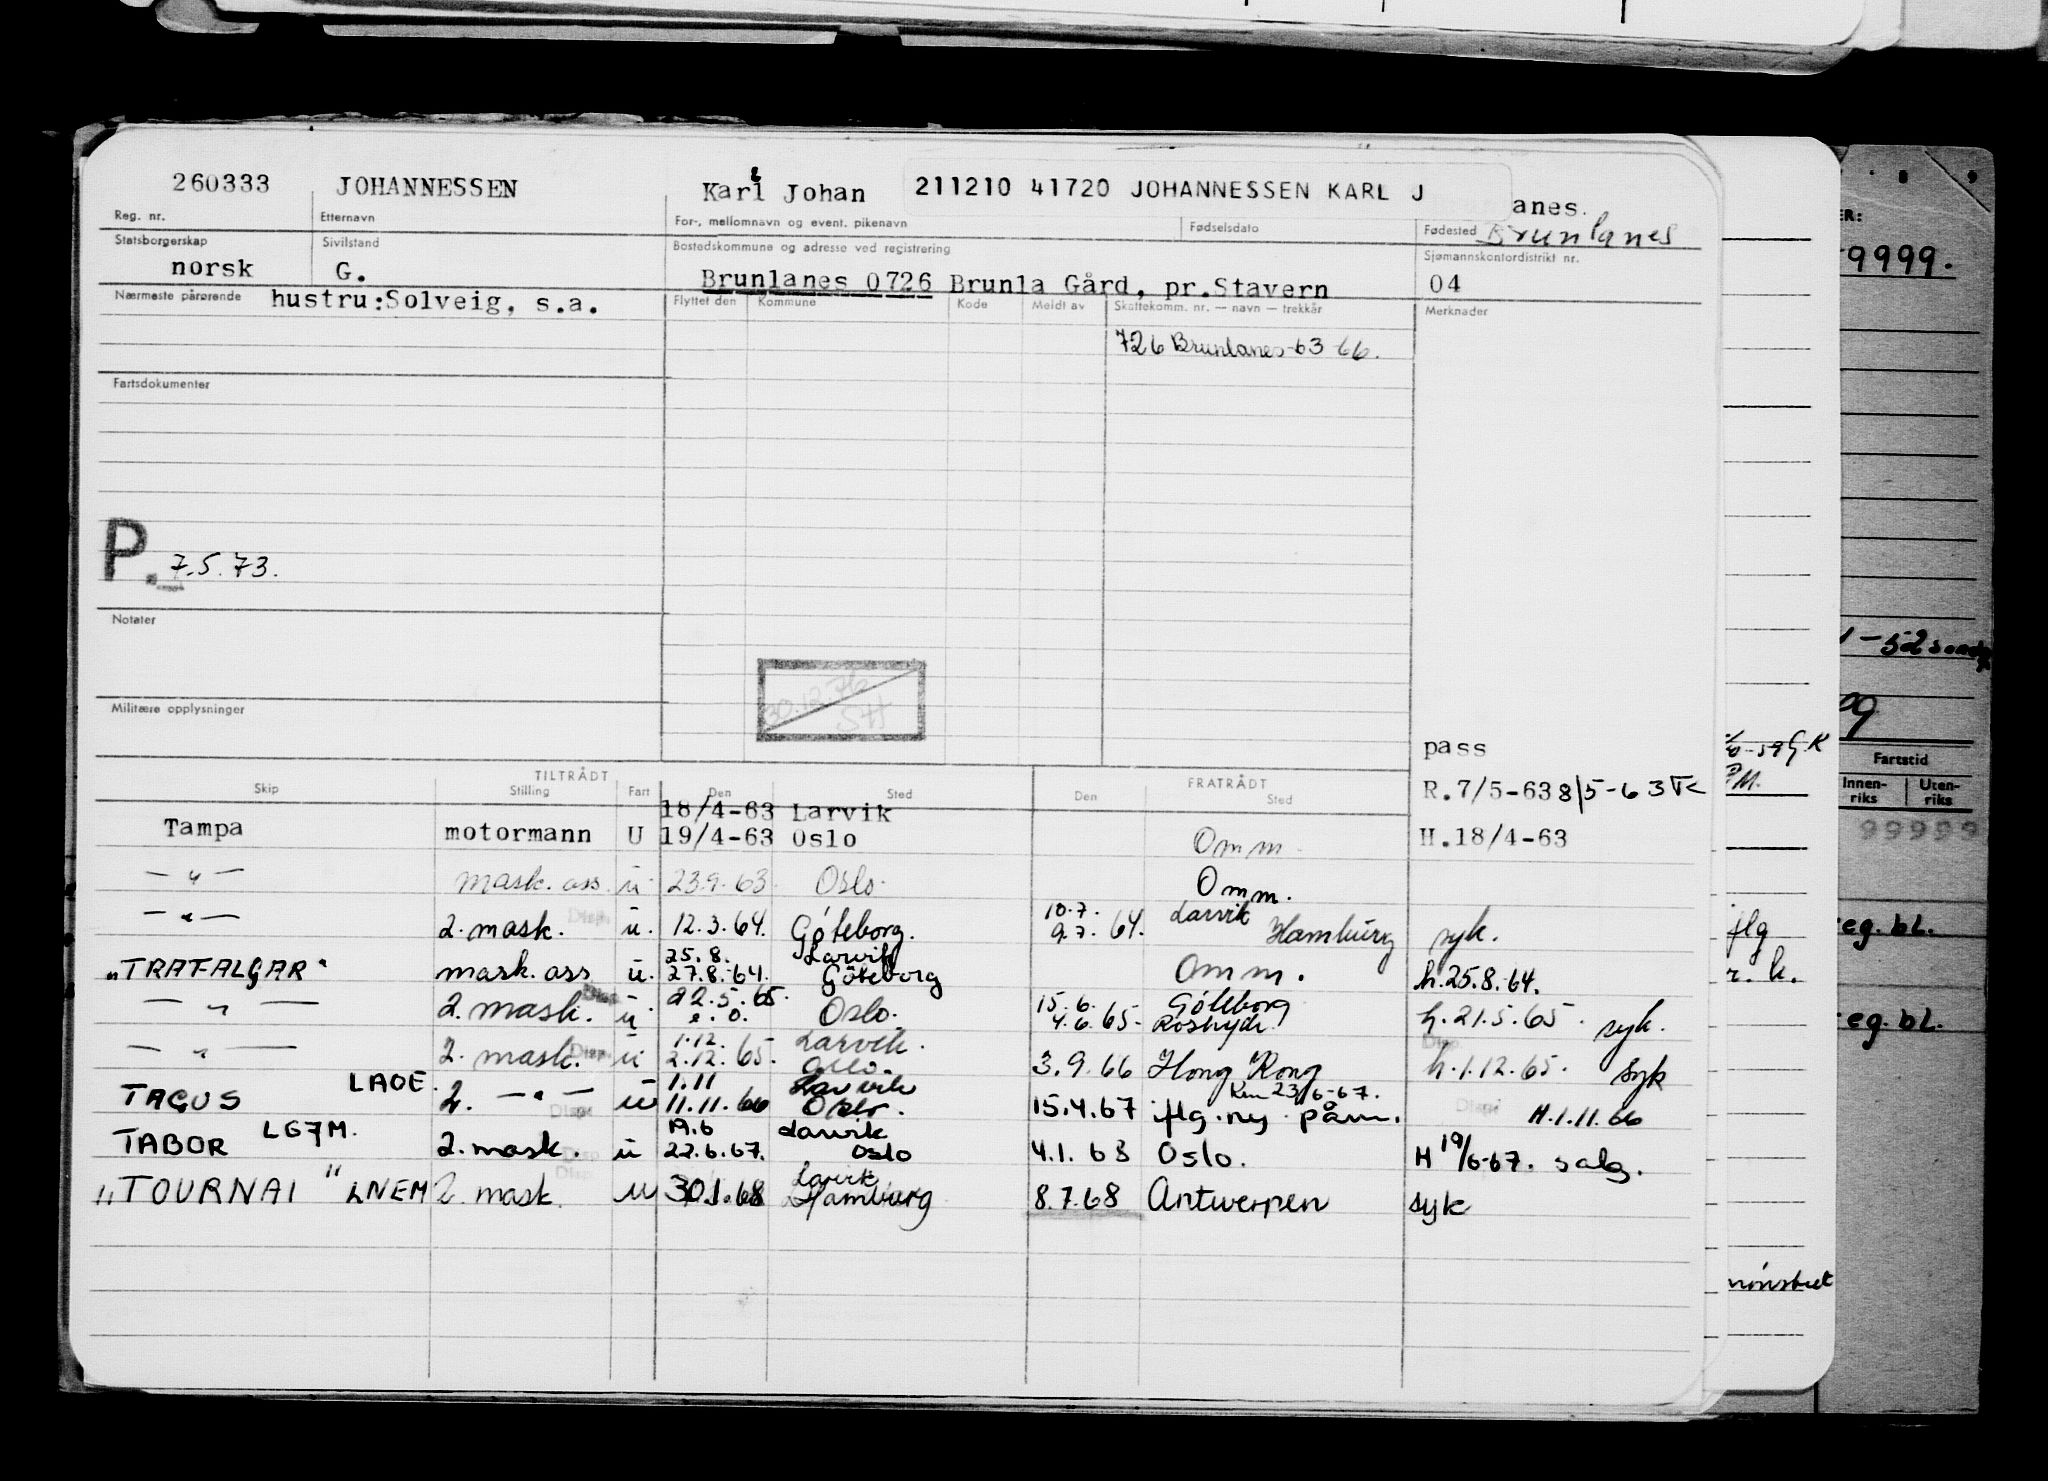 260333 JOHANNESSEN Karl Johan 211210 41720 JOHANNESSEN KARL J anes.
Reg. nr. Etternavn For-, mellomnavn og event. pikenavn Fødselsdato Fødested Brunlanes
Statsborgerskap Sivilstand Bostedskommune og adresse ved registrering Sjømannskontordistrikt nr.
norsk G. Brunlanes 0726 Brunla Gård, pr.Stavern 04
Nærmeste pårørende hustru:Solveig, s.a. Flyttet den Kommune Kode Meldt av Skattekomm. nr. — navn — trekkår Merknader
726 Brunlanes-63-66.
Fartsdokumenter
P. 7.5.73.
Notater
30.12.76
SH
Militære opplysninger
pass
TILTRÅDT FRATRÅDT R.7/5-63 8/5-63
Skip Stilling Fart Den Sted Den Sted
18/4-63 Larvik
Tampa motormann U 19/4-63 Oslo Omm H.18/4-63
— " — mask. ass. u. 23.9.63. Oslo. Omm.
10.7. Larvik
— " — 2. mask. Disp. u. 12.3.64. Göteborg. 9.7.64. Hamburg syk.
25.8. Larvik
"TRAFALGAR" mask. ass u. 27.8.64. Göteborg Omm. h.25.8.64.
— " — 2. mask. Disp. u 22.5.65. Oslo. 15.6. Göteborg h.21.5.65. syk.
e.o. 4.6.65.
1.12. Larvik. Disp.
— " — 2. mask. Disp. u. 2.12.65. Oslo. 3.9.66 Hong Kong h.1.12.65. syk
LAOE. 1.11 Larvik 23/6-67.
TAGUS 2. — " — Disp. u 11.11.66 Oslo. 15.4.67 iflg. ny påm. Disp. H.1.11.66
LG7M. 19.6 Larvik
TABOR 2. mask. Disp u 22.6.67. Oslo 4.1.68 Oslo. H 19/6-67. salg.
Disp. Larvik
"TOURNAI" LNEM 2. mask. u 30.1.68 Hamburg 8.7.68 Antwerpen syk
9999.
Fartstid
Innen-
riks
Uten-
riks
99999
iflg
eg. bl.
r. k.
eg. bl.